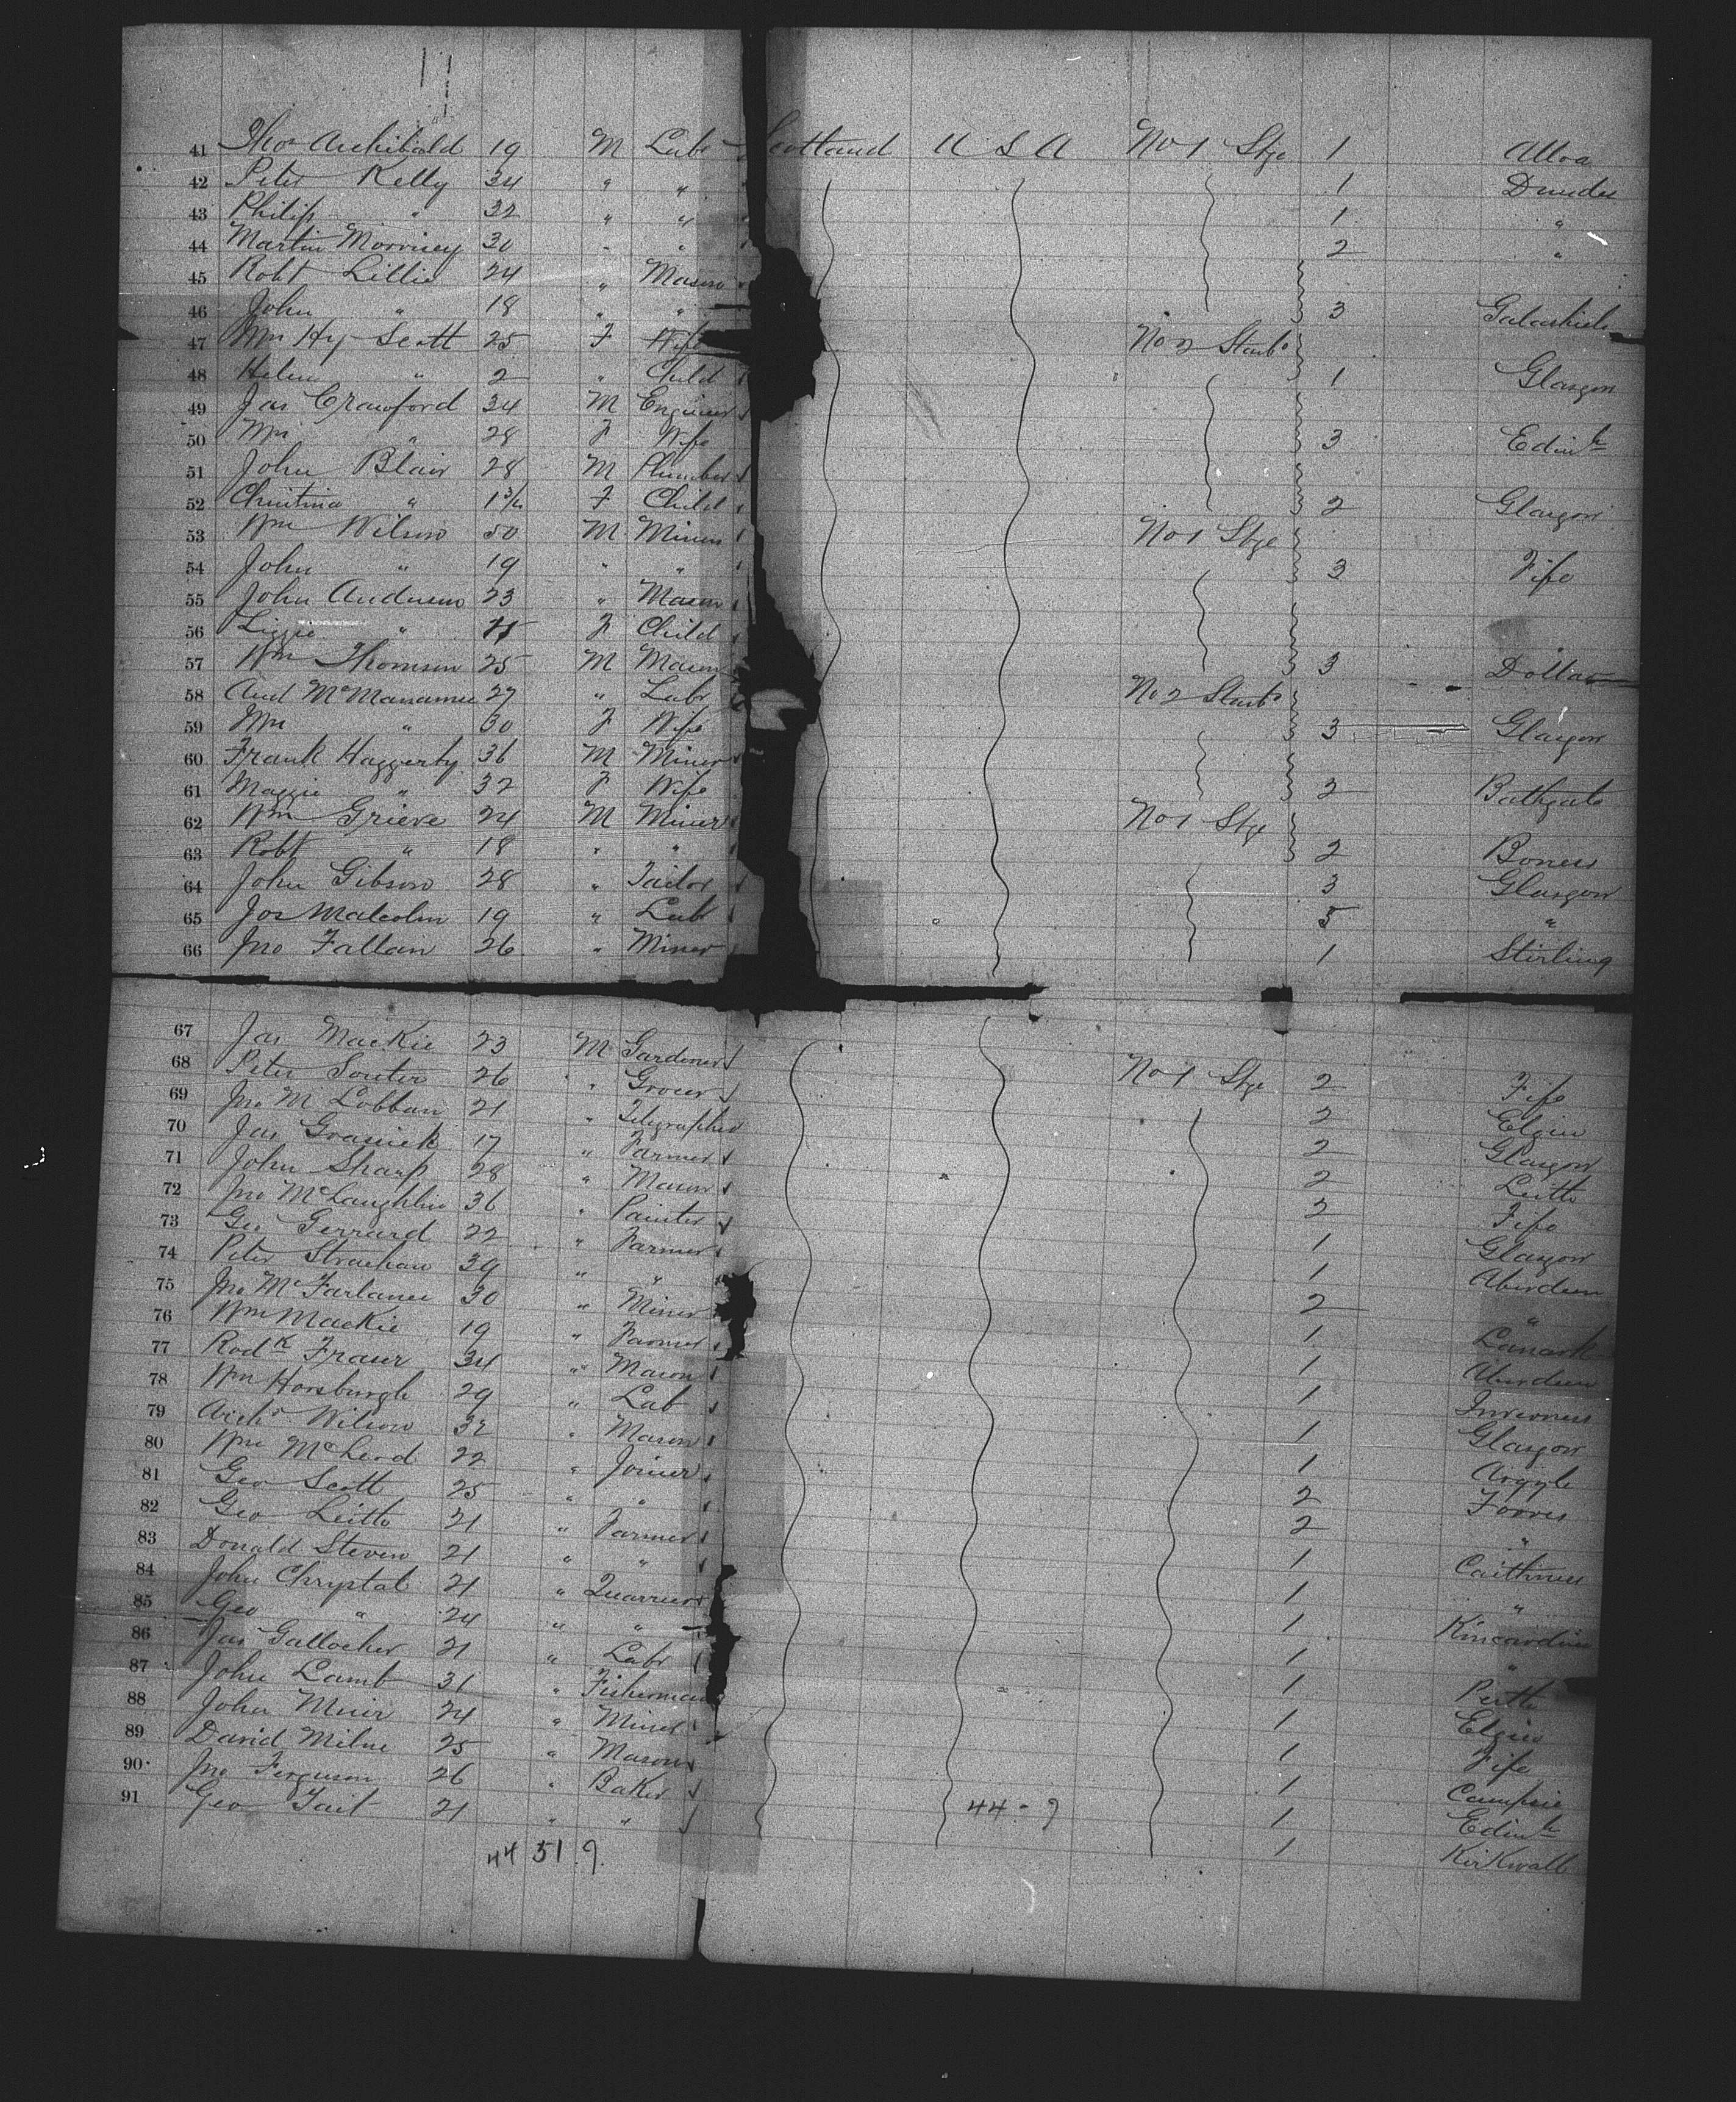 41 Thos Archibald 19 M Labr Scotland U S A No 1 Stge 1 Alloa
42 Peter Kelly 34 " " 1 Dundee
43 Philip " 32 " " 1 "
44 Martin Morrisey 30 " " 2 "
45 Robt Lillie 24 " Mason
46 John " 18 " " 3 Galashiels
47 Mrs Hy Scott 25 F Wife No 2 Starb
48 Helen " 2 " Child 1 Glasgow
49 Jas Crawford 34 M Engineer
50 Mrs " 28 F Wife 3 Edinh
51 John Blair 28 M Plumber
52 Christina " F Child 2 Glasgow
53 Wm Wilson 50 M Miner No 1 Stge
54 John " 19 " " 3 Fife
55 John Anderson 23 " Mason
56 Lizzie " F Child
57 Wm Thomson 25 M Mason 3 Dollar
58 And McManamee 27 " Labr No 2 Starb
59 Mrs " 30 F Wife 3 Glasgow
60 Frank Haggerty 36 M Miner
61 Maggie " 32 F Wife 2 Bathgate
62 Wm Grieve 24 M Miner No 1 Stge
63 Robt " 18 " " 2 Boness
64 John Gibson 28 " Tailor 3 Glasgow
65 Jos Malcolm 19 " Labr 5 "
66 Jno Fallain 26 " Miner 1 Stirling
67 Jas Mackie 23 M Gardener No 1 Stge 2 Fife
68 Peter Souter 26 " Grocer 2 Elgin
69 Jno M Lobban 21 " Telegrapher 2 Glasgow
70 Jas Grassick 17 " Farmer 2 Leith
71 John Sharp 28 " Mason 2 Fife
72 Jno McLaughlin 36 " Painter 1 Glasgow
73 Geo Gerrard 22 " Farmer 1 Aberdeen
74 Peter Strachan 39 " " 2 "
75 Jno McFarlane 30 " Miner 1 Lanark
76 Wm Mackie 19 " Farmer 1 Aberdeen
77 Rodk Fraser 34 " Mason 1 Inverness
78 Wm Horsburgh 29 " Lab 1 Glasgow
79 Archd Wilson 32 " Mason 1 Argyle
80 Wm McLeod 22 " Joiner 2 Forres
81 Geo Scott 25 " " 2 "
82 Geo Leith 21 " Farmer 1 Caithness
83 Donald Steven 21 " " 1 "
84 John Chrystal 21 " Quarrier 1 Kincardine
85 Geo " 24 " " 1 "
86 Jas Gallocher 21 " Labr 1 Perth
87 John Lamb 31 " Fisherman 1 Elgin
88 John Muir 24 " Miner 1 Fife
89 David Milne 25 " Mason 1 Campsie
90 Jno Ferguson 26 " Baker 1 Edinh
91 Geo Tait 21 " " 44-9 1 Kirkwall
44 51 9